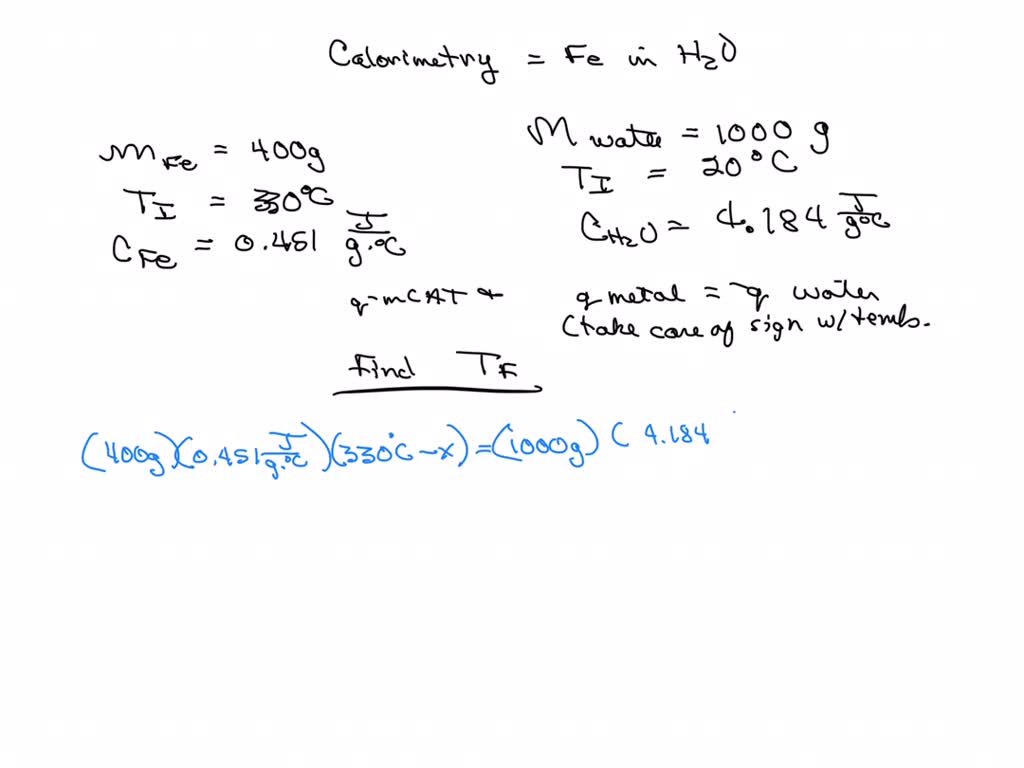 Calorimetry = Fe in H₂O
m Fe = 400g
T_I = 330°C
C Fe = 0.451 J/g·°C
M water = 1000 g
T_I = 20°C
C H₂O = 4.184 J/g°C
q=mCΔT +
q metal = -q water
(take care of sign w/temps.
Find T_F
(400g)(0.451 J/g·°C)(330°C-x)=(1000g)(4.184